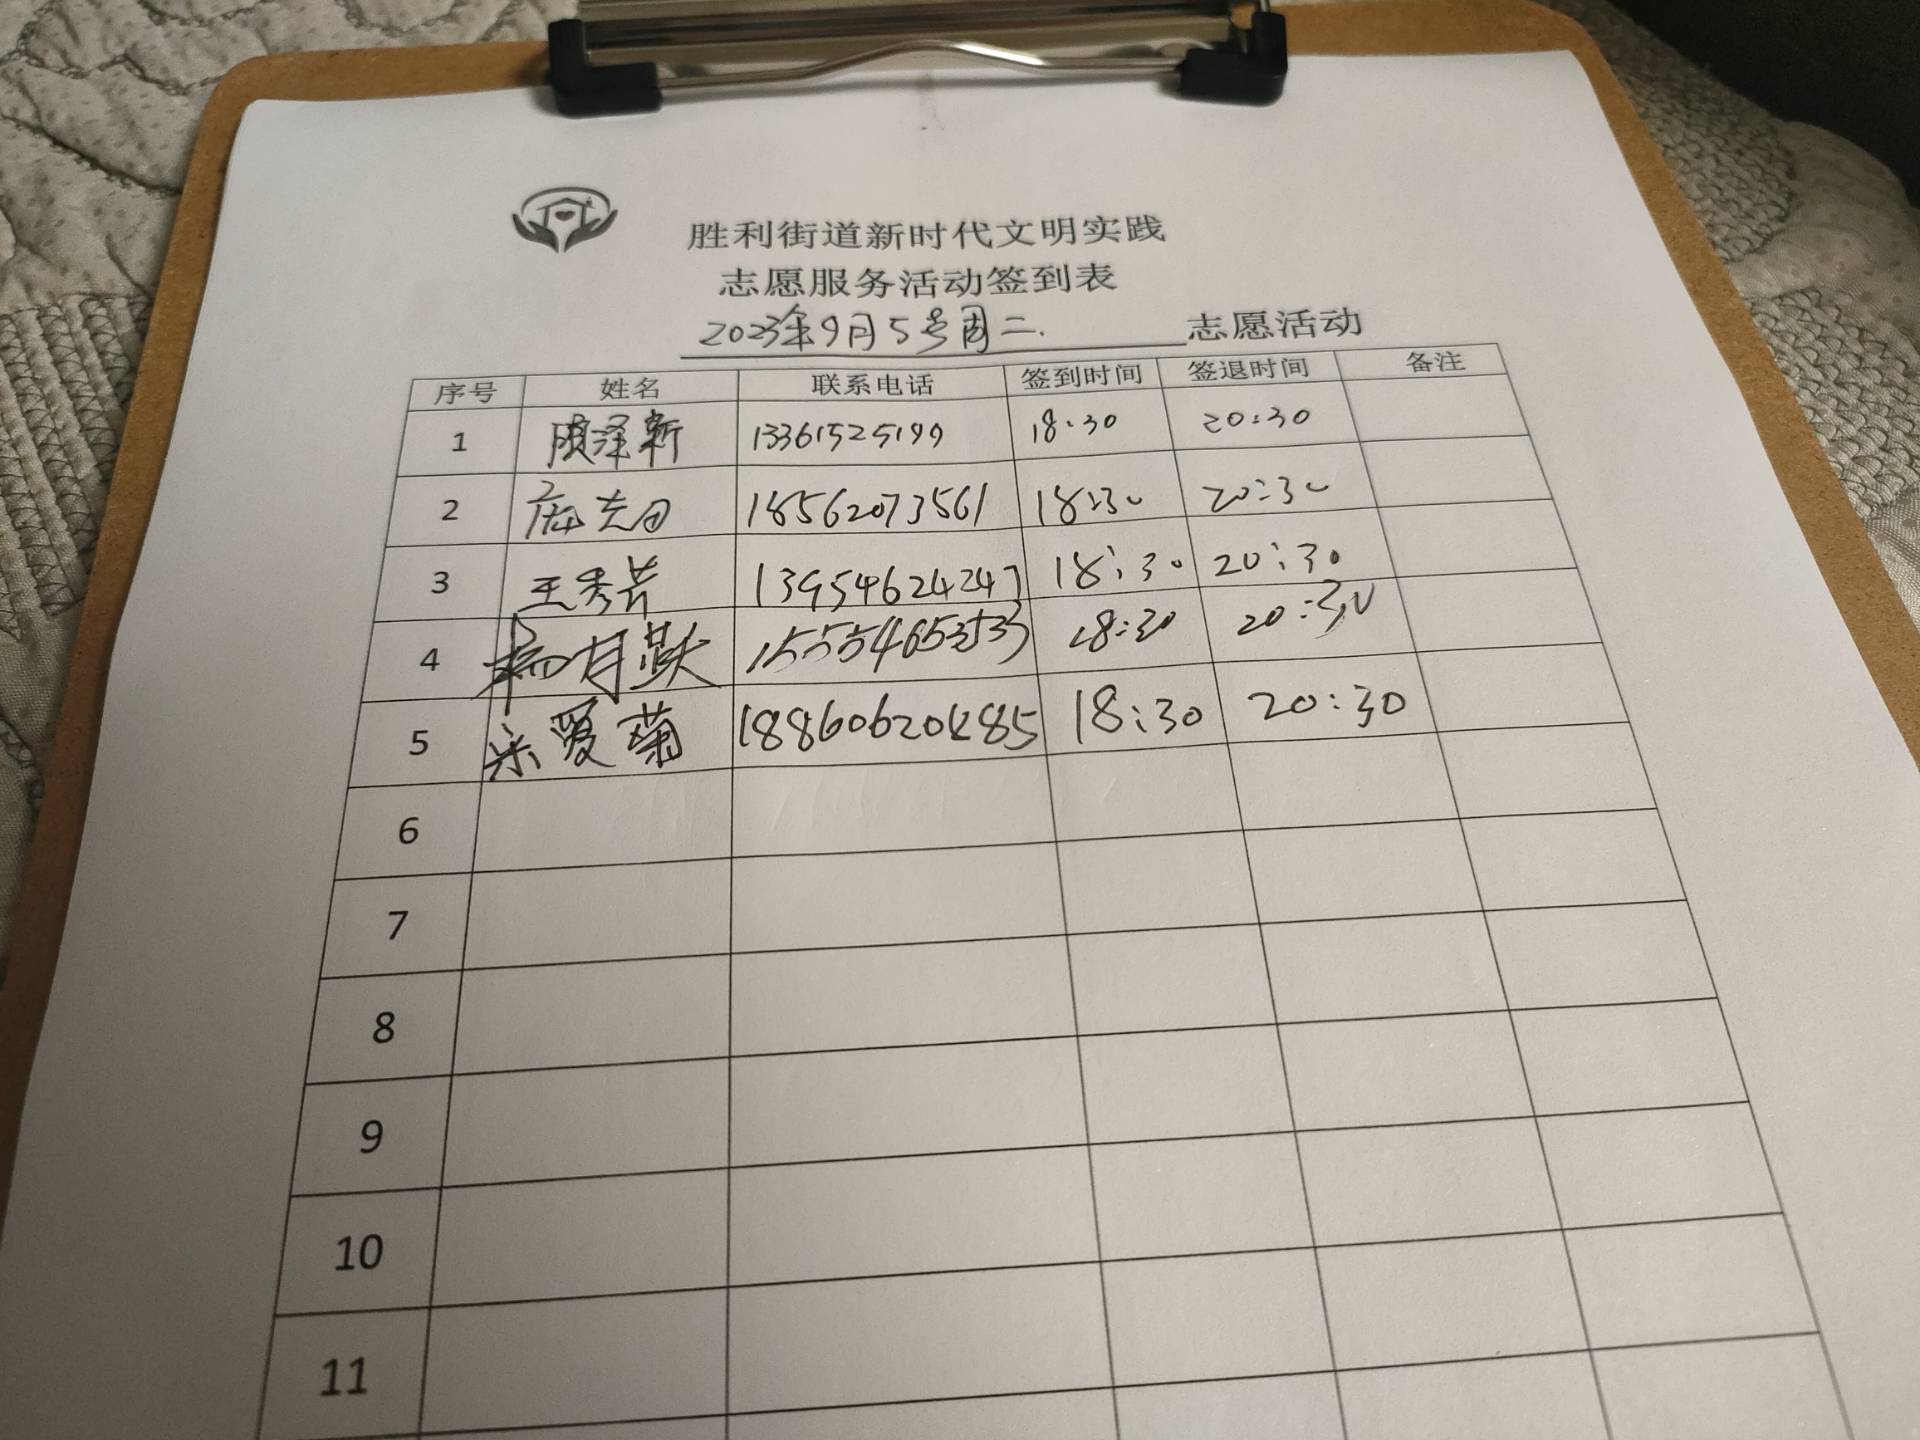 胜利街道新时代文明实践
志愿服务活动签到表
2023年9月5号周二. 志愿活动
序号 姓名 联系电话 签到时间 签退时间 备注
1 泽新 13361525199 18:30 20:30
2 18562073561 18:30 20:30
3 王秀芳 13954624247 18:30 20:30
4 杨月燕 18:30 20:30
5 宋爱菊 18:30 20:30
6
7
8
9
10
11